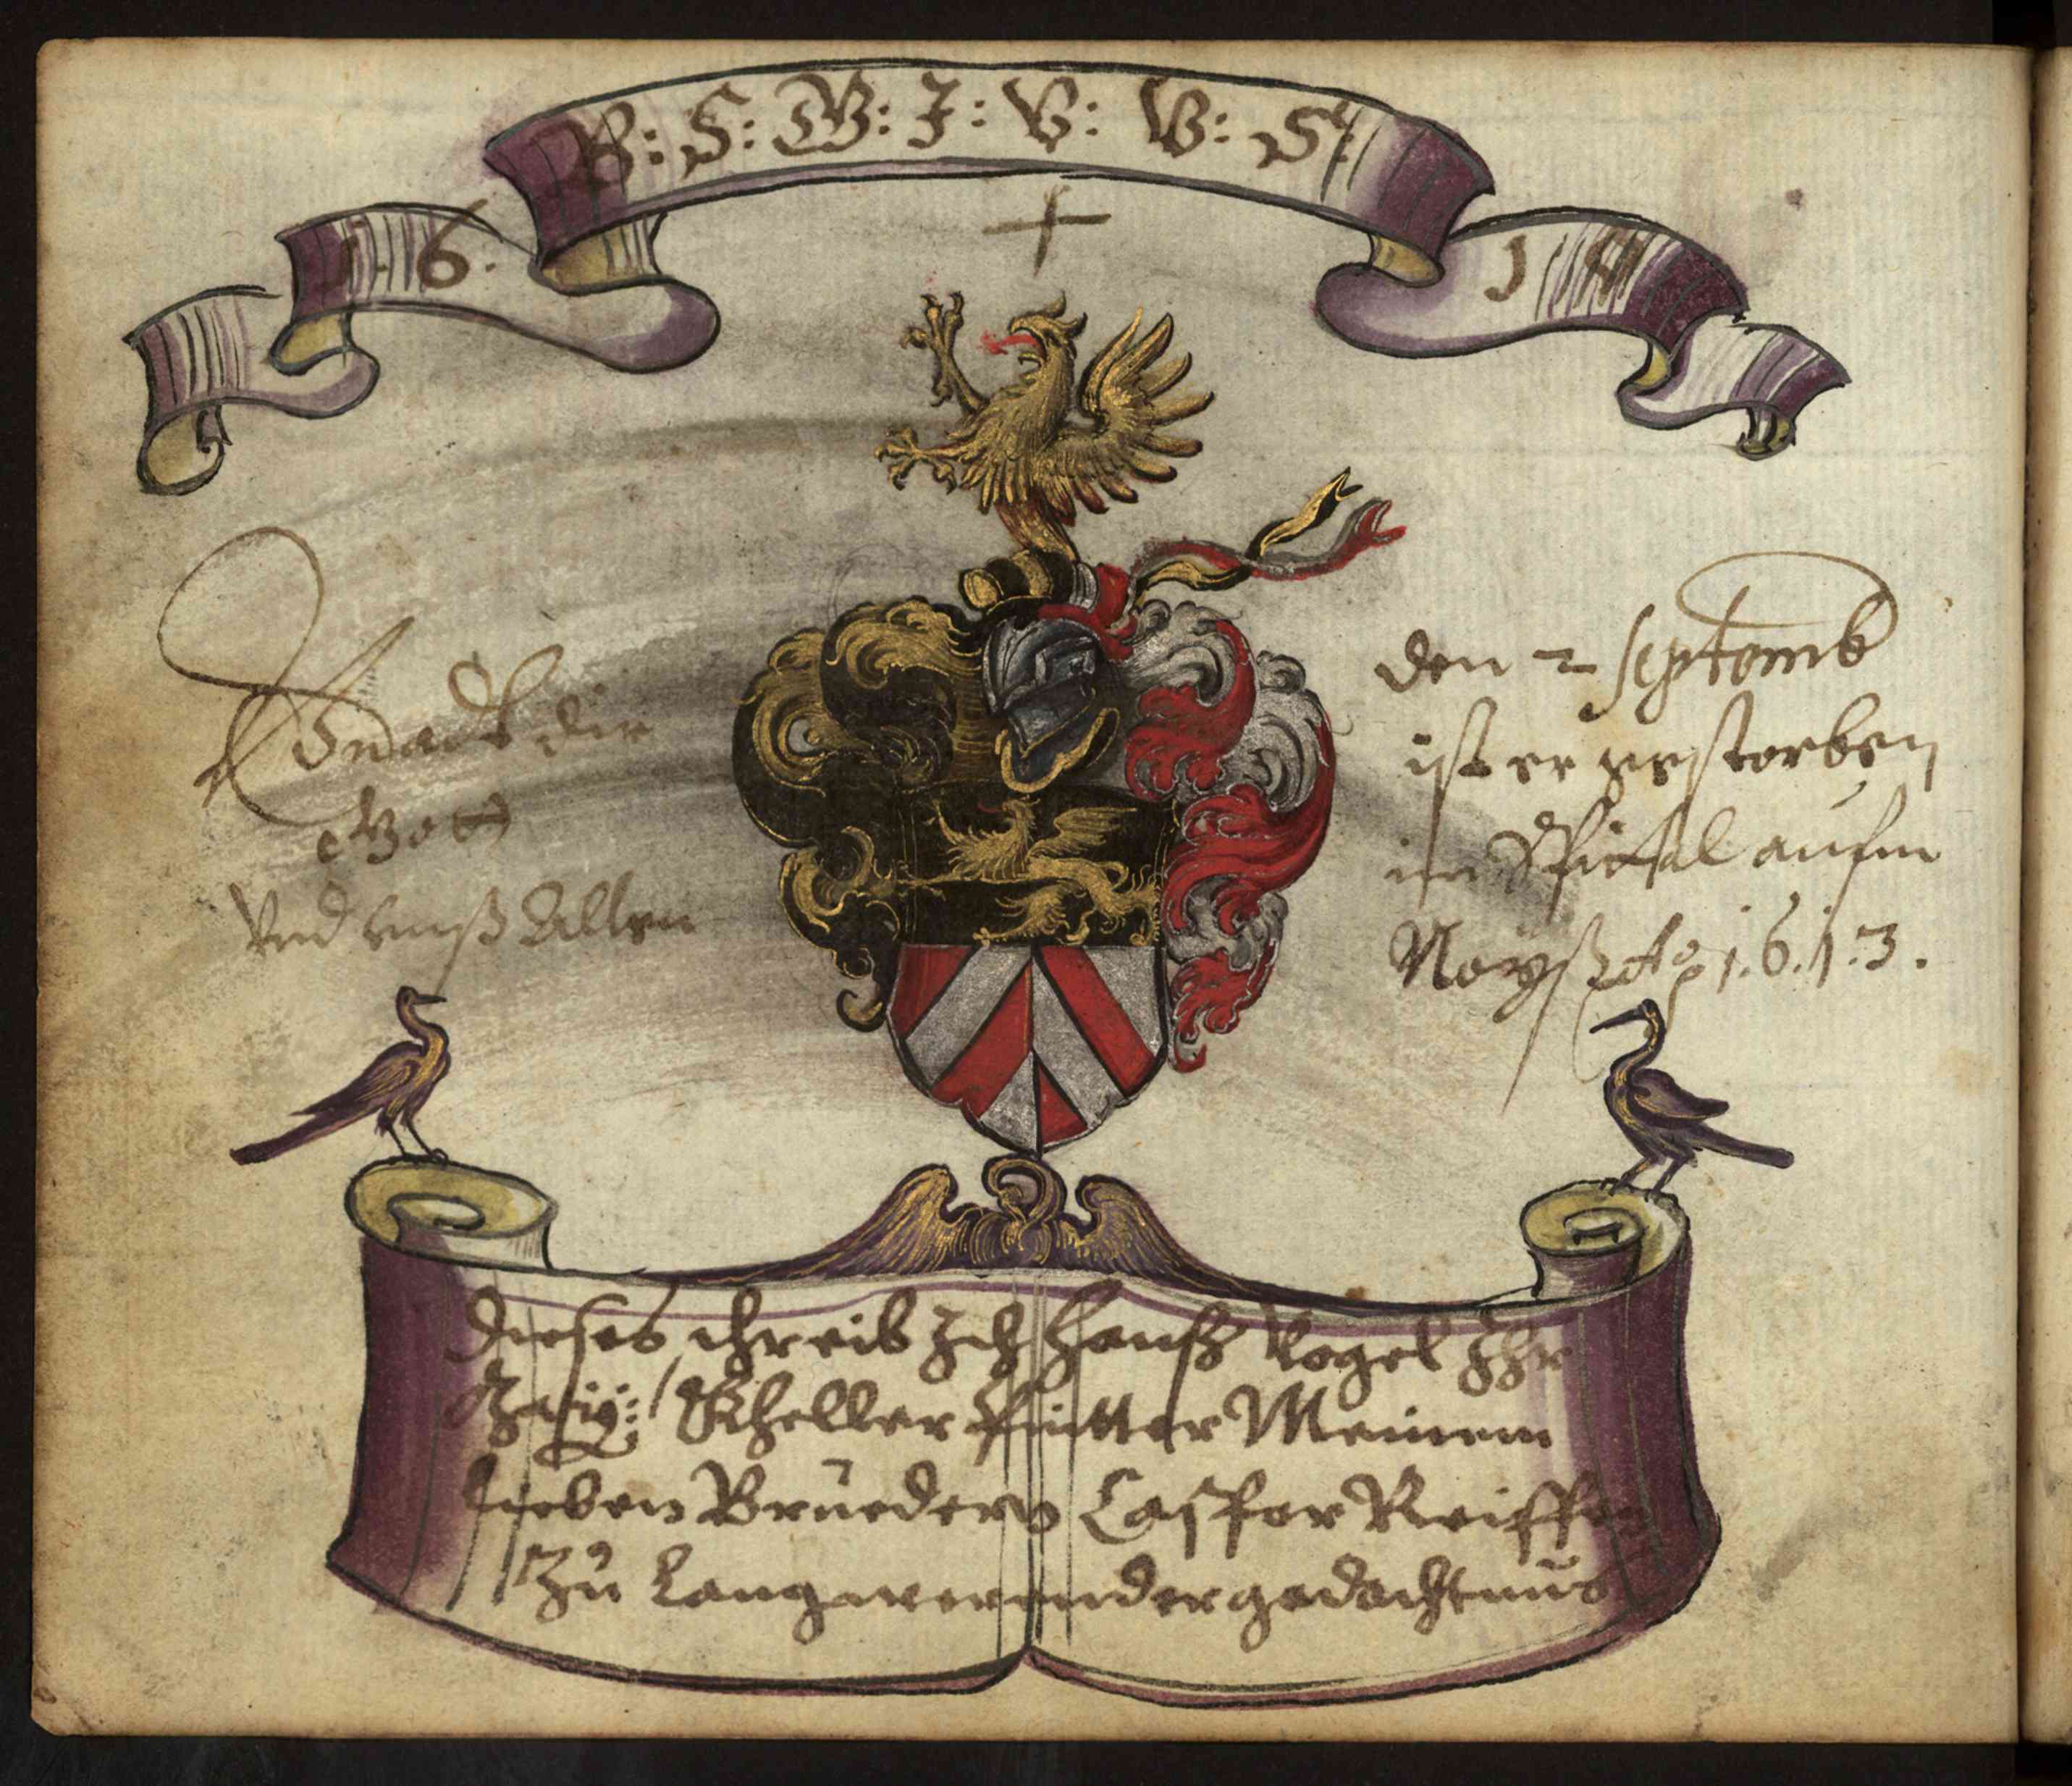 B: S: W: I: V: V: S:
1.6.
1
Gnadt dir
Gott
Vnd unß Allen
den 2 septemb
ist er gestorben
im Spital aufm
1.6.1.3.
Dieses schreib Ich Hanß Vogel Ihr
Kheller Meinem
lieben Bruedern Casper Reiffen
Zu Langwerender gedachtnus